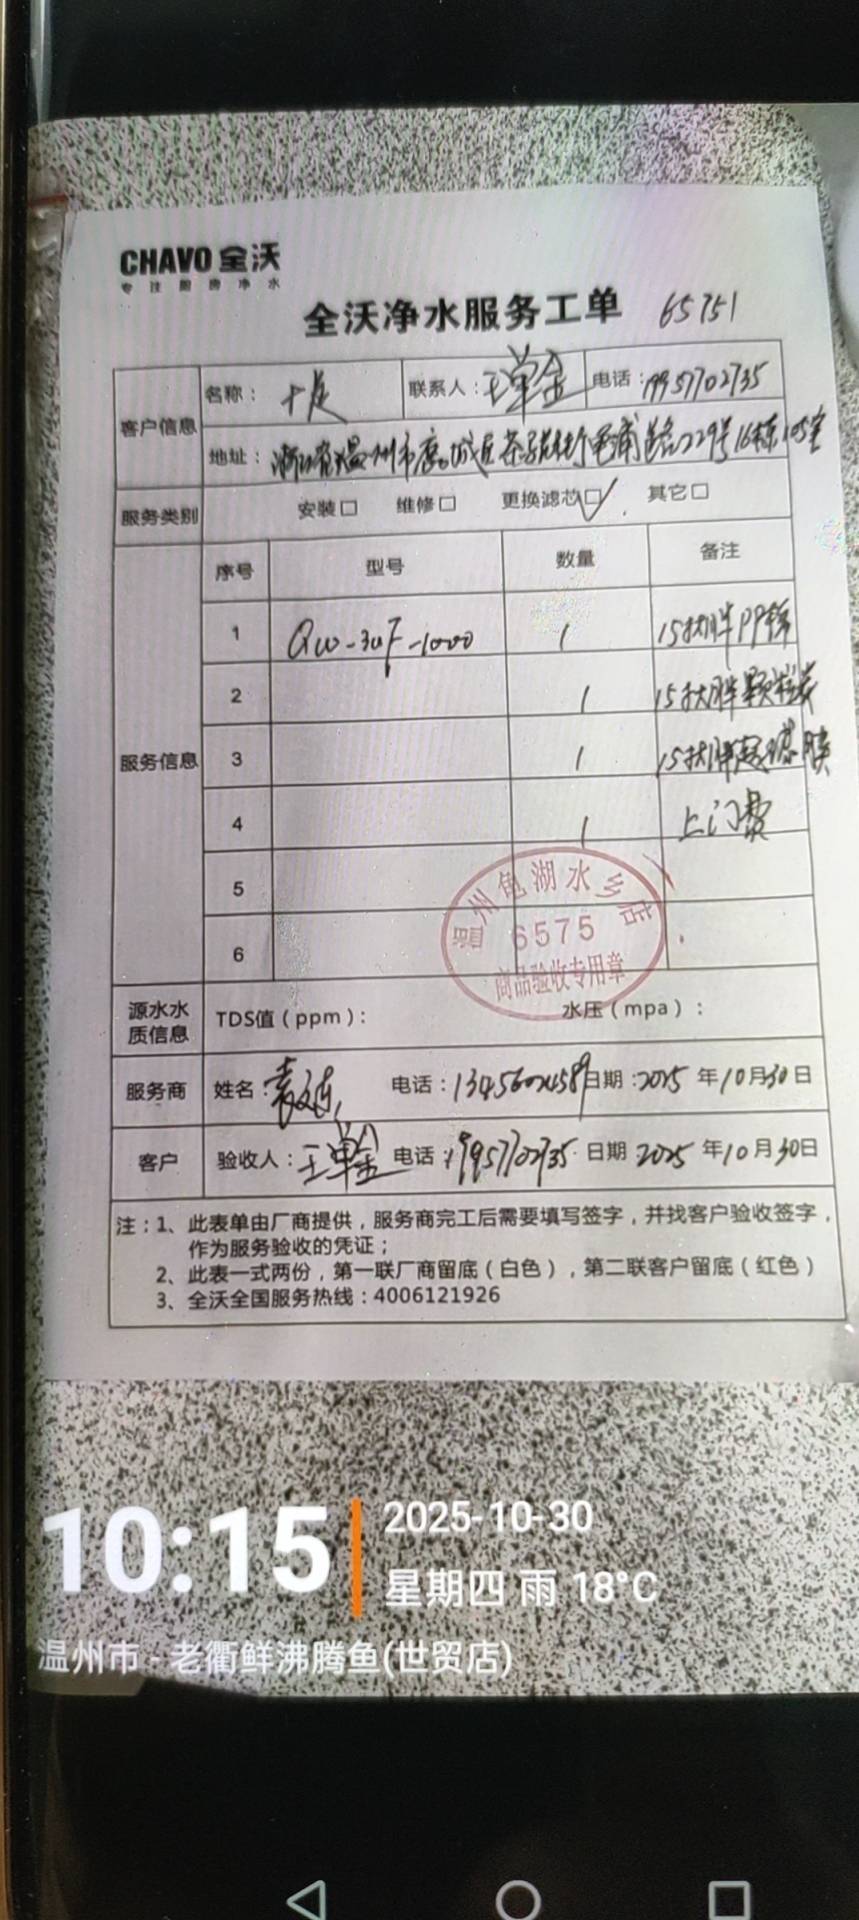 CHAVO 全沃
专注厨房净水
全沃净水服务工单 65751
客户信息 名称： 联系人：王单金 电话：19957702735
地址：浙江省温州市鹿城区茶 街 浦路229号16栋105室
服务类别 安装□ 维修□ 更换滤芯☑ 其它□
服务信息 序号 型号 数量 备注
1 QW-3UF-1000 1 15寸大胖PP棉
2 1 15寸大胖颗粒炭
3 1 15寸大胖超滤膜
4 1 上门费
5
6
温州龟湖水乡店
6575
商品验收专用章
源水水质信息 TDS值（ppm）： 水压（mpa）：
服务商 姓名：袁 电话： 日期：2025年10月30日
客户 验收人：王单金 电话：19957702735 日期 2025年10月30日
注：1、此表单由厂商提供，服务商完工后需要填写签字，并找客户验收签字，
作为服务验收的凭证；
2、此表一式两份，第一联厂商留底（白色），第二联客户留底（红色）
3、全沃全国服务热线：4006121926
10:15
2025-10-30
星期四 雨 18°C
温州市 - 老衢鲜沸腾鱼(世贸店)